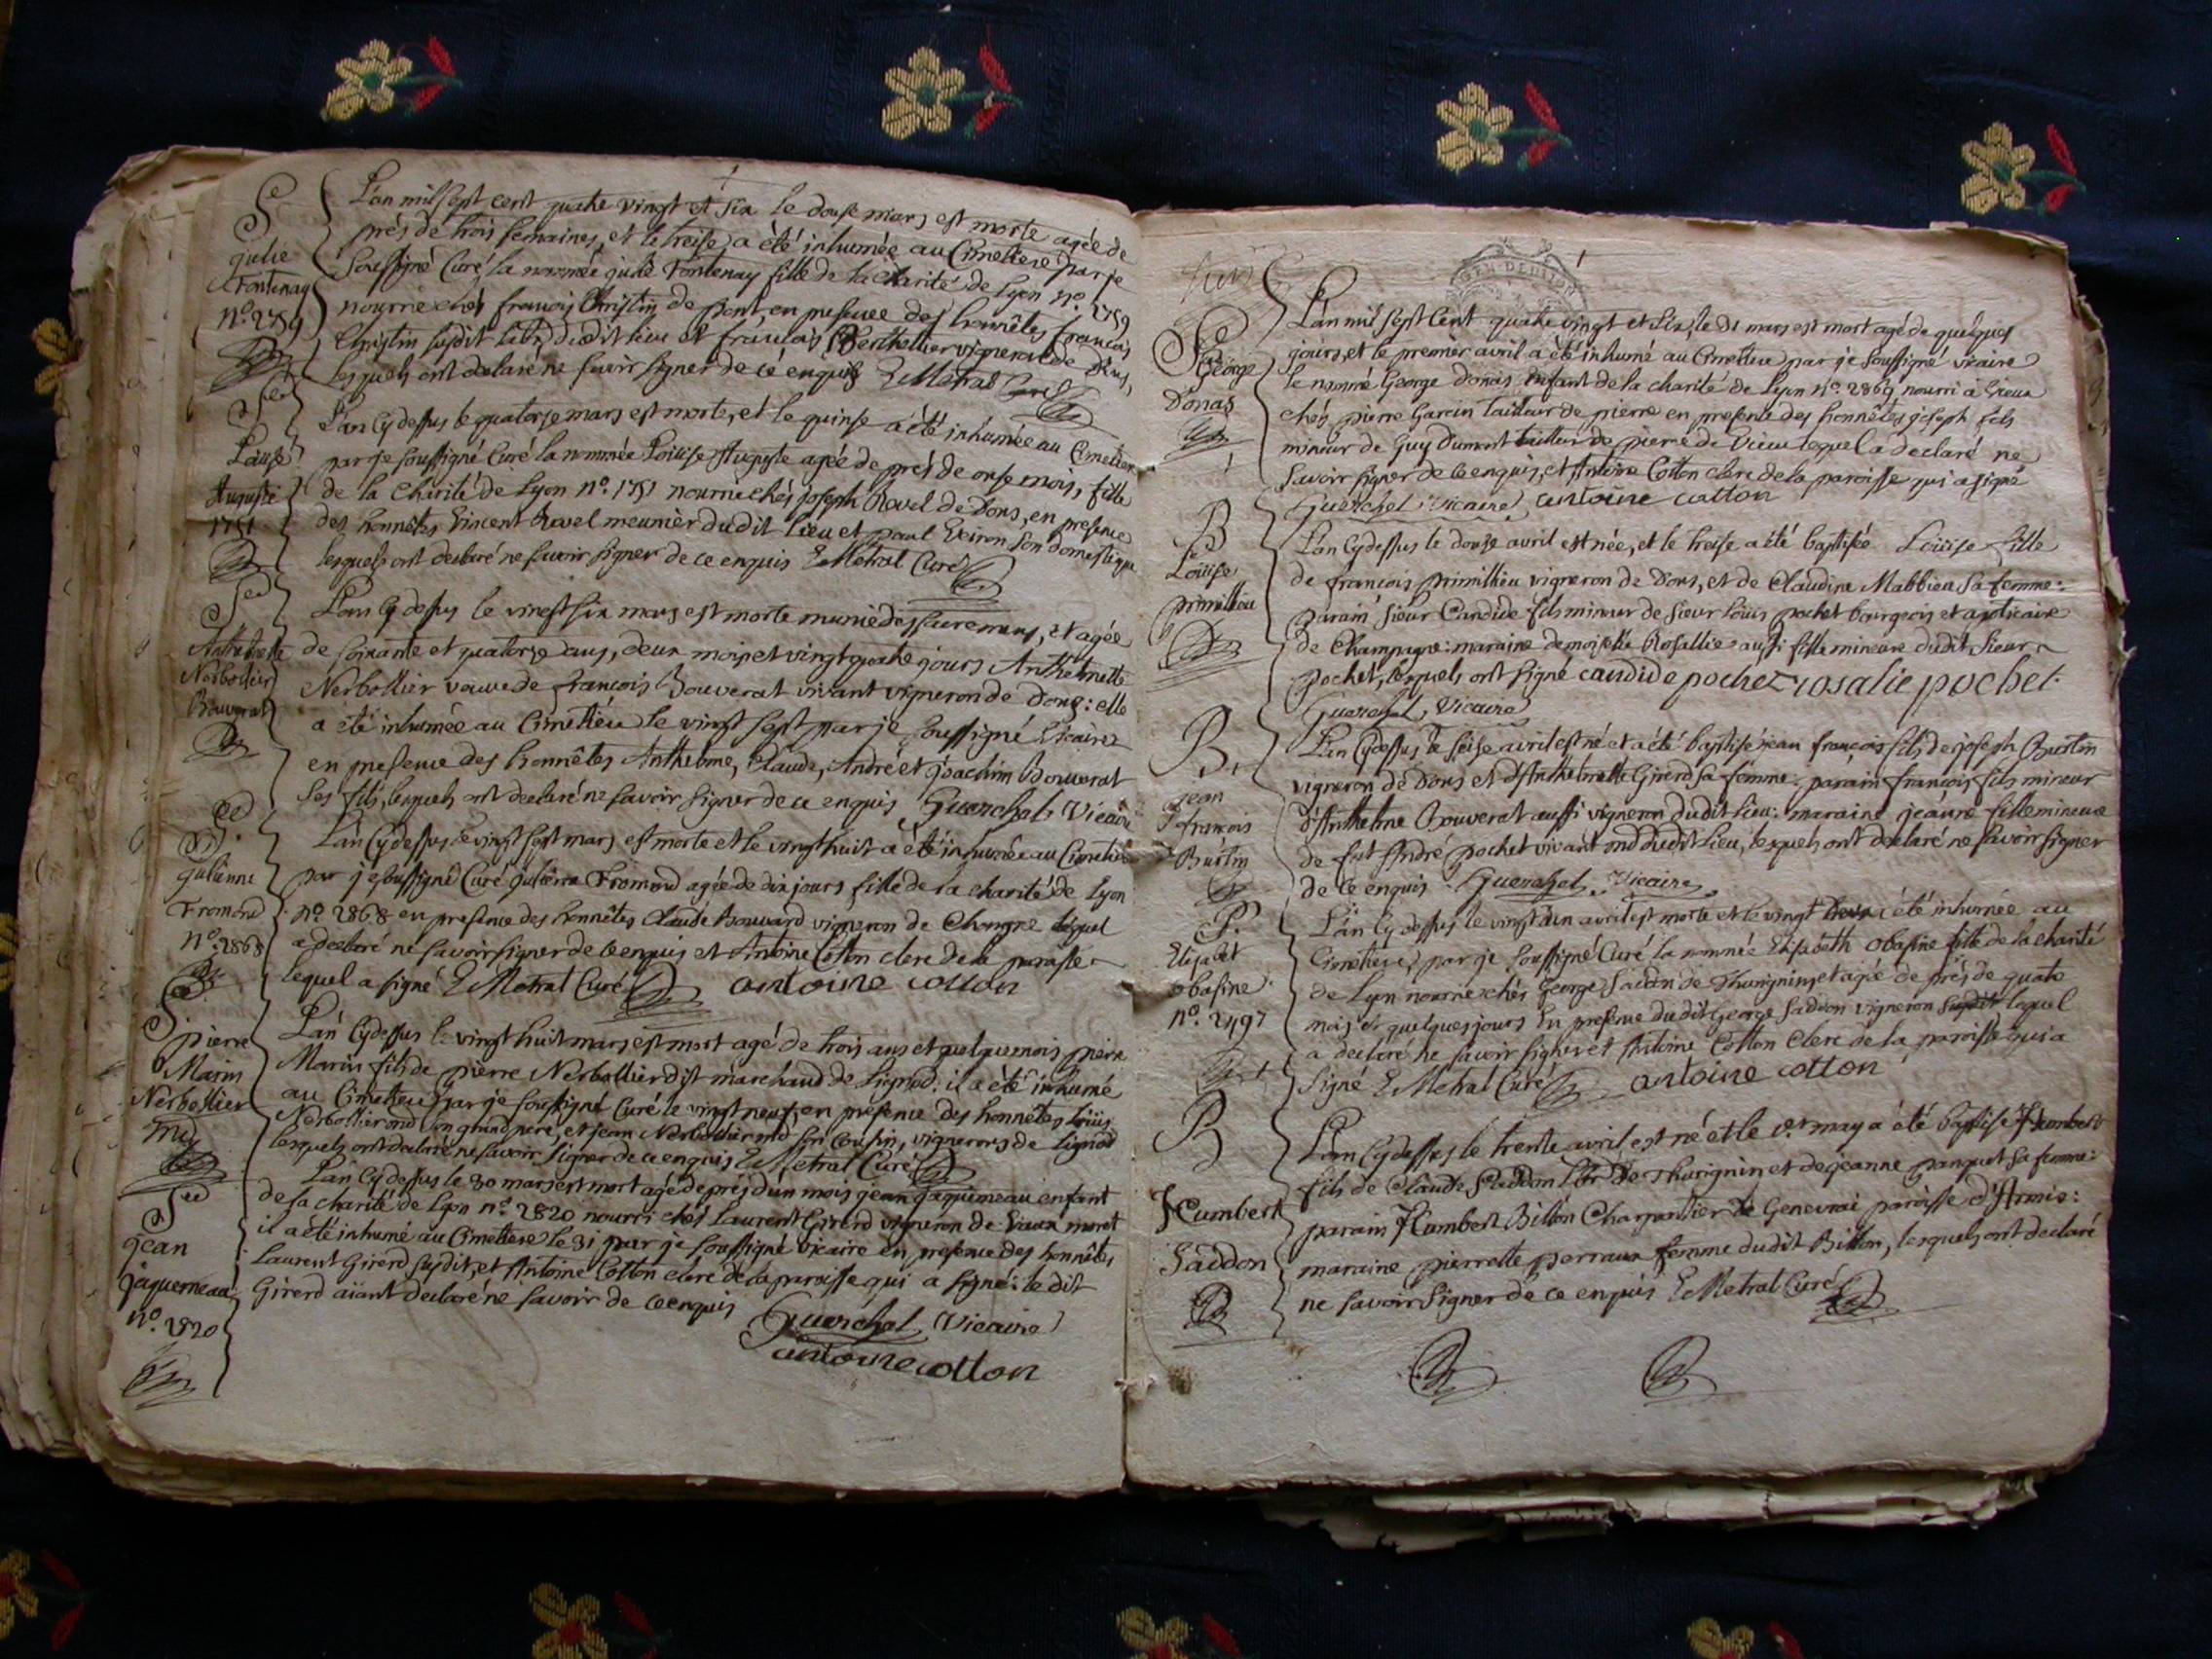 S
julie
Fontenay
n.º 2759
L'an mil sept cent quatre vingt et six le douse mars est morte agée de
près de trois semaines, et le treise a été inhumée au Cimetiere par je
soussigné Curé la nommée julie Fontenay fille de la charité de Lyon n.º 2759
nourrie chés francois Christin de pont, en presence des honnêtes francois
Christin susdit dudit lieu et francois Berthellier vigneron de Dons,
lesquels ont declaré ne savoir signer de ce enquis E Metral Curé
Louise
Auguste
1751
L'an Cy dessus le quatorze mars est morte, et le quinse a été inhumée au Cimetiere
par je soussigné Curé la nommée Louise Auguste agée de près de onse mois, fille
de la Charité de Lyon n.º 1751 nourrie chés joseph Ravel de Dons, en presence
des honnêtes Vincent Ravel meunier dudit lieu et paul Veiron son domestique
lesquels ont declaré ne savoir signer de ce enquis E Metral Curé
Anthelmette
Nerbollier
Bouverat
L'an Cy dessus le vingt six mars est morte munie des sacremens, et agée
de soixante et quatorze ans, deux mois et vingt quatre jours Anthelmette
Nerbollier veuve de francois Bouverat vivant vigneron de Dons: elle
a été inhumée au Cimetiere le vingt sept par je soussigné Vicaire
en presence des honnêtes Anthelme, Claude, André et joachim Bouverat
ses fils, lesquels ont declaré ne savoir signer de ce enquis Guerchel, Vicaire
julienne
Fromond
n.º 2868
L'an Cy dessus le vingt sept mars est morte et le vingt huit a été inhumée au Cimetiere
par je soussigné Curé julienne Fromond agée de dix jours fille de la charité de Lyon
n.º 2868 en presence des honnêtes Claude Bouvard vigneron de Chongne lequel
a declaré ne savoir signer de ce enquis et Antoine Cotton clerc de la paroisse
lequel a signé E Metral Curé antoine cotton
S
pierre
Marin
Nerbollier
L'an Cy dessus le vingt huit mars est mort agé de trois ans et quelque mois pierre
Marin fils de pierre Nerbollier dit marchand de Lignod: il a été inhumé
au Cimetiere par je soussigné Curé le vingt neuf en presence des honnêtes Loüis
Nerbollier son grand pere, et jean Nerbollier son Cousin, vignerons de Lignod
lesquels ont declaré ne savoir signer de ce enquis E Metral Curé
jean
jaquemeau
n.º 2820
L'an Cy dessus le 30 mars est mort agé de près d'un mois jean jaquemeau enfant
de la charité de Lyon n.º 2820 nourri chés Laurent Girerd vigneron de Vaux moret
il a été inhumé au Cimetiere le 31 par je soussigné vicaire en presence des honnêtes
Laurent Girerd susdit, et Antoine Cotton clerc de la paroisse qui a signé: le dit
Girerd aiant declaré ne savoir de ce enquis
Guerchel, Vicaire
antoine cotton
George
Donas
L'an mil sept Cent quatre vingt et six, le 31 mars est mort agé de quelques
jours, et le premier avril a été inhumé au Cimetiere par je soussigné vicaire
le nommé George Donas enfant de la charité de Lyon n.º 2869 nourri à Vieux
chés pierre Garcin tailleur de pierre en presence des honnêtes joseph fils
mineur de Guy Dumont tailleur de pierre de Vieux lequel a declaré ne
savoir signer de ce enquis, et Antoine Cotton clerc de la paroisse qui a signé
Guerchel, Vicaire antoine cotton
B
Loüise
primillieu
L'an Cy dessus le douze avril est née, et le treise a été baptisée Loüise fille
de francois primillieu vigneron de Dons, et de Claudine Mabbieu sa femme:
parain sieur Candide fils mineur de sieur Loüis pochet bourgeois et apoticaire
de Champagne: maraine demoiselle Rosallie aussi fille mineure dudit sieur
pochet, lesquels ont signé candide pochet rosalie pochet
Guerchel, Vicaire
B
jean
francois
Burtin
L'an Cy dessus le seise avril est né et a été baptisé jean francois fils de joseph Burtin
vigneron de Dons et d'Anthelmette Girerd sa femme: parain francois fils mineur
d'Anthelme Bouverat aussi vigneron dudit lieu: maraine jeanne fille mineure
de feu André pochet vivant dudit lieu, lesquels ont declaré ne savoir signer
de ce enquis Guerchel, Vicaire
Elisabet
obasine
n.º 2497
L'an Cy dessus le vingt un avril est morte et le vingt deux a été inhumée au
Cimetiere, par je soussigné Curé la nommée Elisabeth obasine fille de la charité
de Lyon nourrie chés George Saddon de Thurignin, et agée de près de quatre
mois et quelques jours En presence dudit George Saddon vigneron susdit lequel
a declaré ne savoir signer et Antoine Cotton Clerc de la paroisse qui a
signé E Metral Curé antoine cotton
B
Humbert
Saddon
L'an Cy dessus le trente avril est né et le 1er may a été baptisé Humbert
fils de Claude Saddon de Thurignin et de jeanne panquet sa femme:
parain Humbert Billon Charpentier de Genevrai paroisse d'Armis:
maraine pierrette perraux femme dudit Billon, lesquels ont declaré
ne savoir signer de ce enquis E Metral Curé